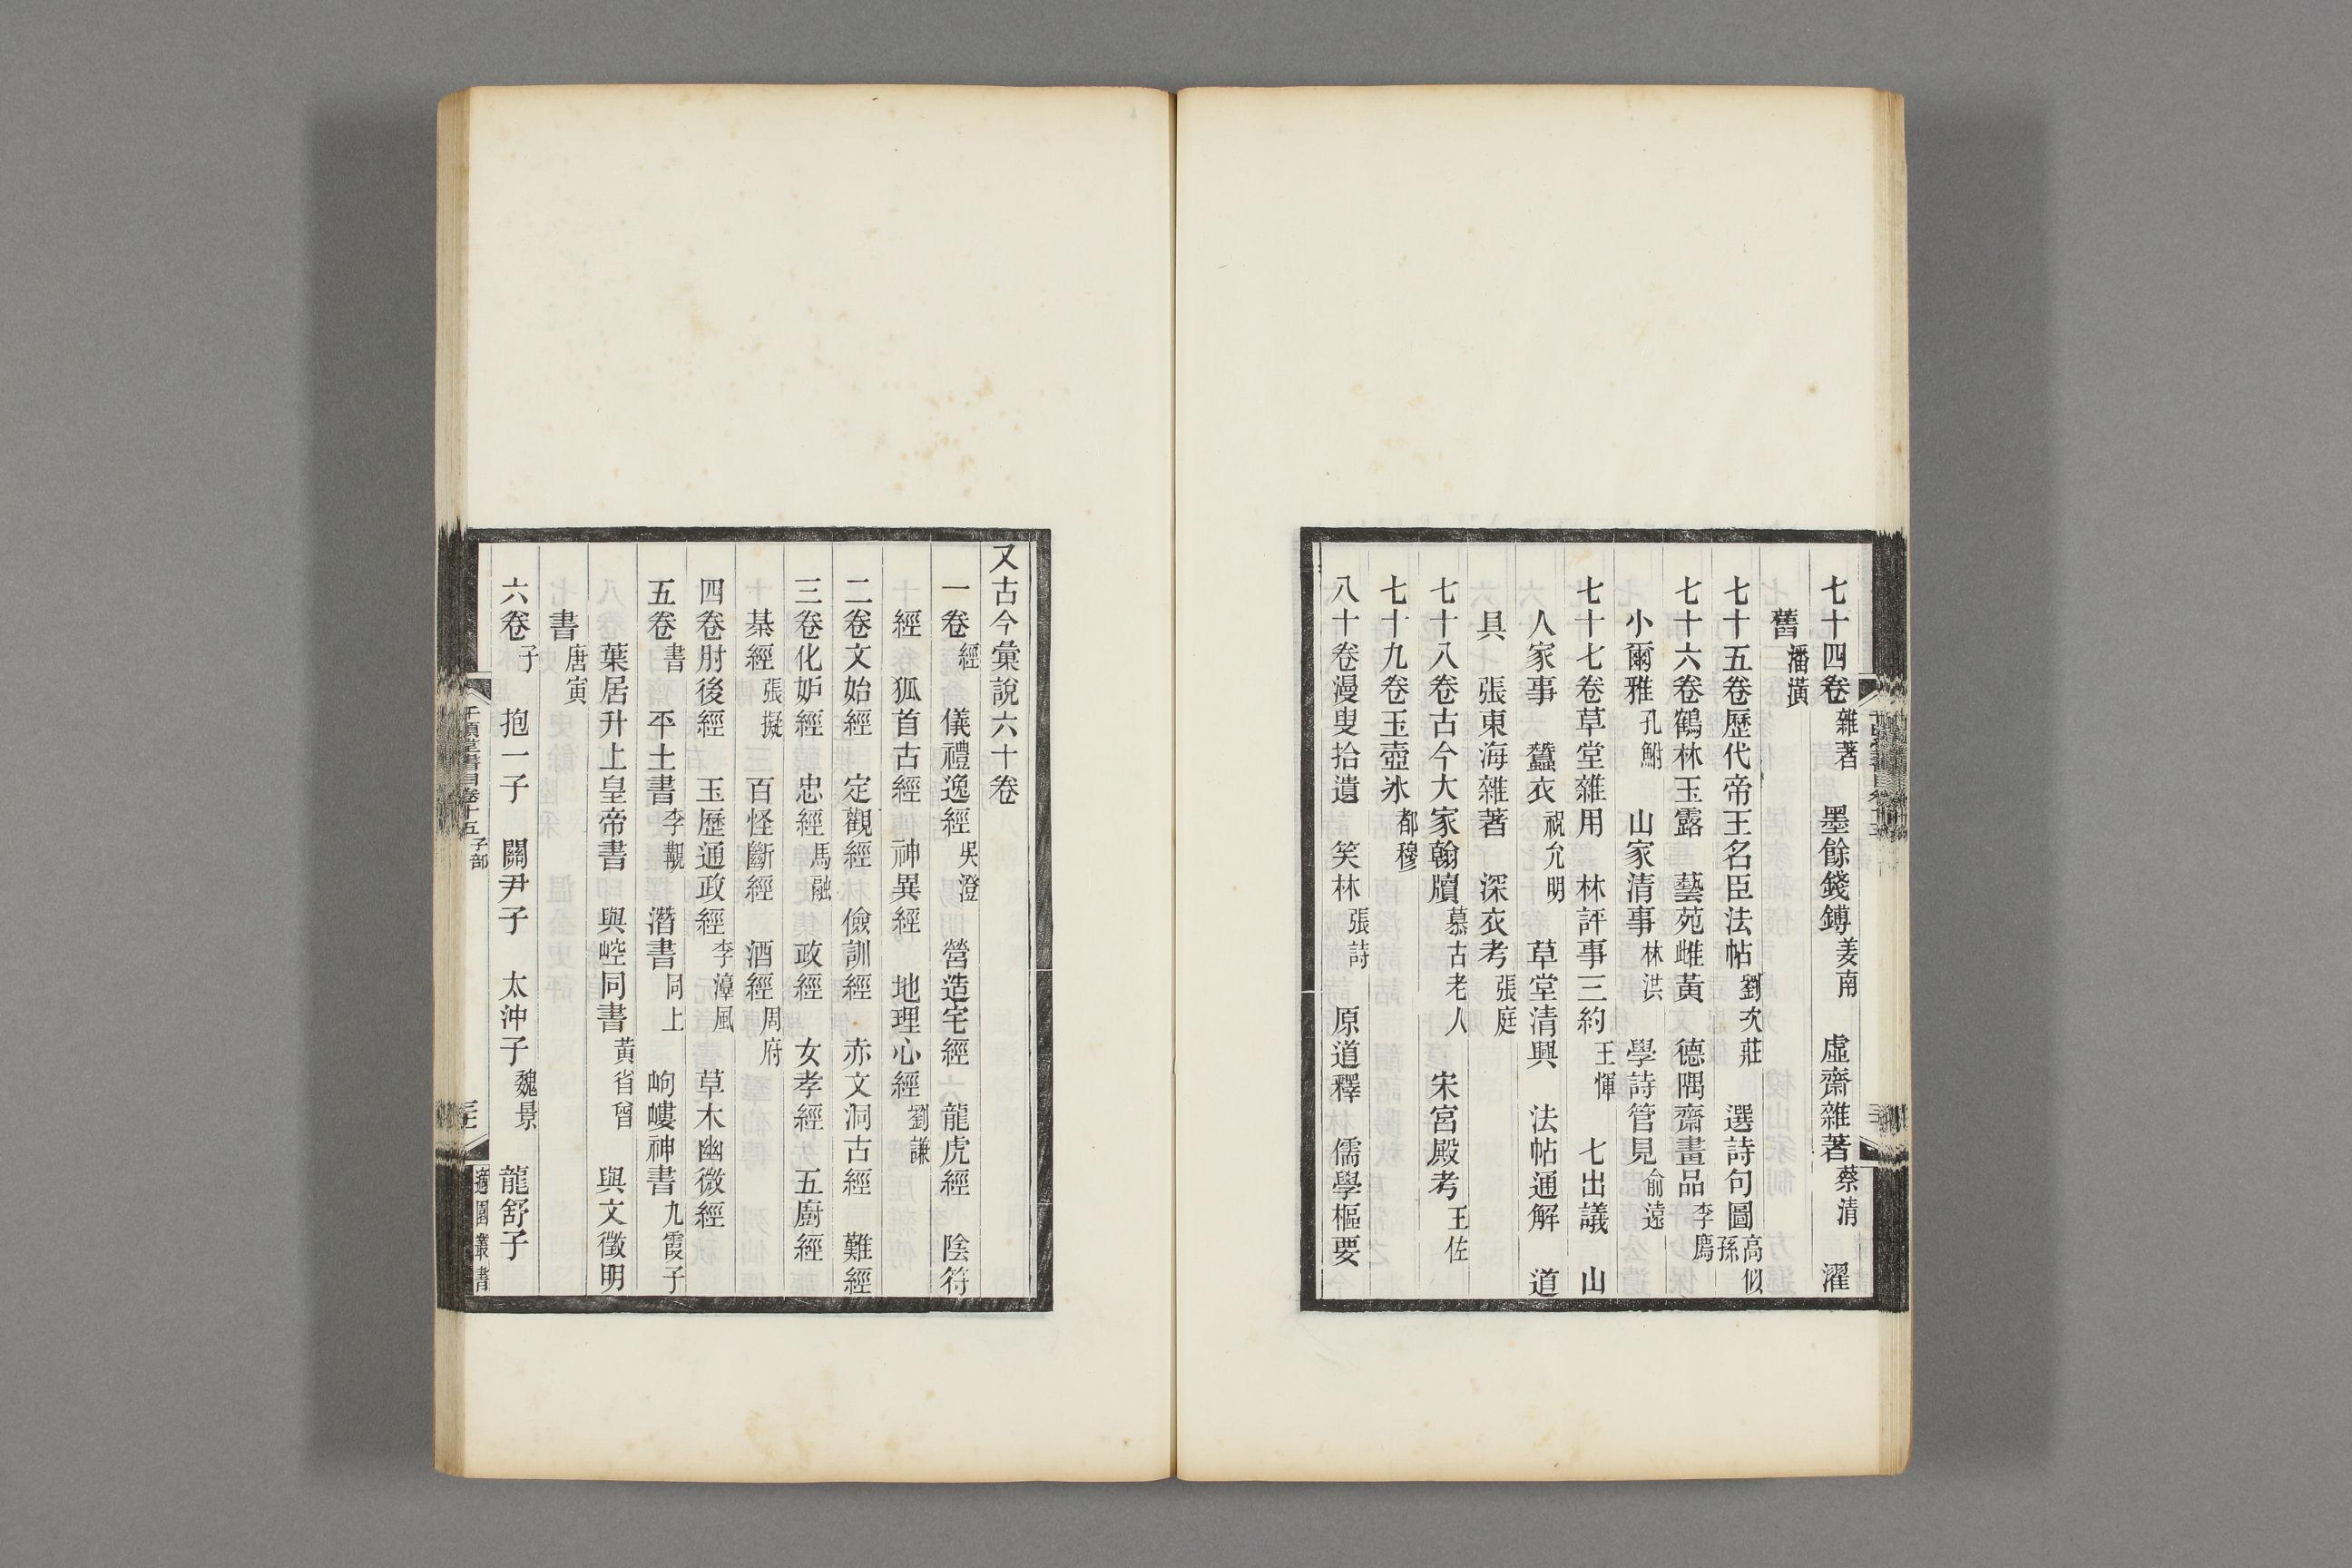 七十四卷雜著　墨餘錢鎛姜南　虛齋雜著蔡清　濯
舊潘潢
七十五卷歷代帝王名臣法帖劉次莊　選詩句圖高似孫
七十六卷鶴林玉露　藝苑雌黃　德隅齋畫品李廌
小爾雅孔鮒　山家清事林洪　學詩管見俞遠
七十七卷草堂雜用　林評事三約王惲　七出議　山
人家事　蠶衣祝允明　草堂清興　法帖通解　道
具　張東海雜著　深衣考張庭
七十八卷古今大家翰牘慕古老人　宋宮殿考王佐
七十九卷玉壺冰都穆
八十卷漫叟拾遺　笑林張詩　原道釋　儒學樞要
又古今彙說六十卷
一卷經　儀禮逸經吳澄　營造宅經　龍虎經　陰符
經　狐首古經　神異經　地理心經劉謙
二卷文始經　定觀經　儉訓經　赤文洞古經　難經
三卷化妒經　忠經馬融　政經　女孝經　五廚經
棊經張擬　百怪斷經　酒經周府
四卷肘後經　玉歷通政經李淳風　草木幽微經
五卷書　平土書李覯　潛書同上　岣嶁神書九霞子
葉居升上皇帝書　與崆同書黃省曾　與文徵明
書唐寅
六卷子　抱一子　關尹子　太沖子魏景　龍舒子
千頃堂書目卷十五子部
適園叢書